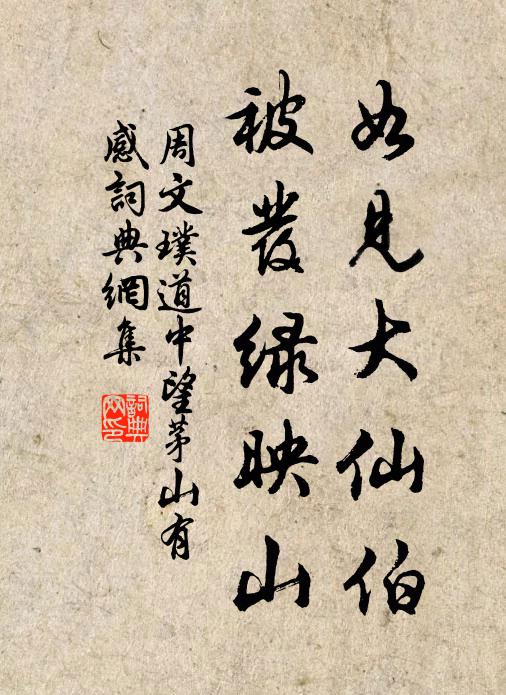 如見大仙伯
被發綠映山
周文璞道中望茅山有
感詞典網集
詞典網印